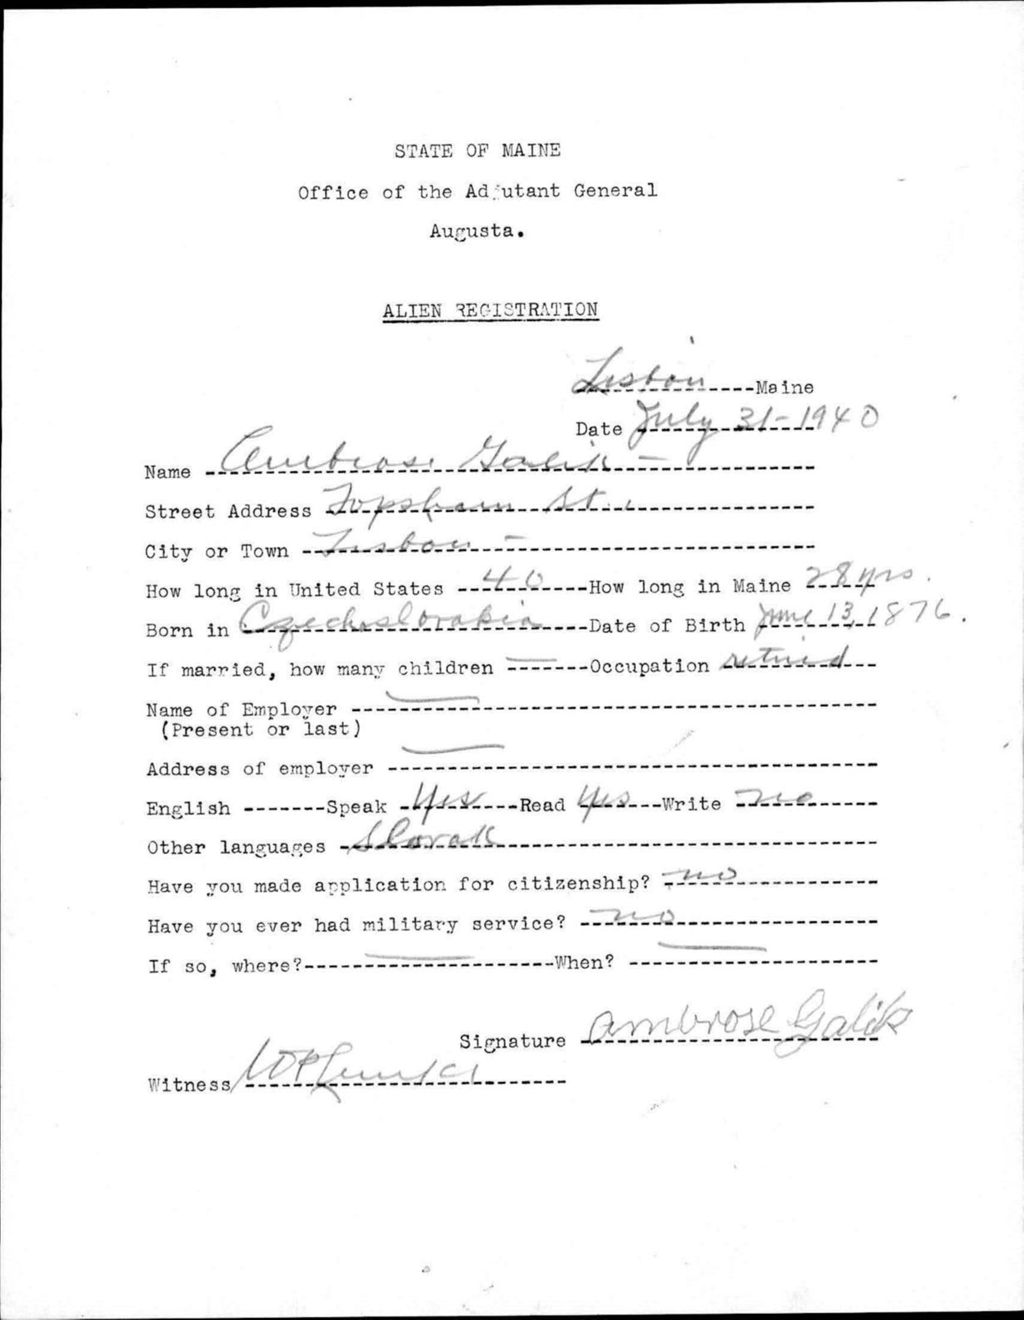 STATE OF MAINE
Office of the Adjutant General
Augusta.
ALIEN REGISTRATION
Lisbon Maine
Date July 31-1940
Name Ambrose Galik -
Street Address Topsham St.
City or Town Lisbon -
How long in United States 40 How long in Maine 28 yrs.
Born in Czechoslovakia Date of Birth June 13, 1876.
If married, how many children — Occupation retired
Name of Employer —
(Present or last)
Address of employer —
English Speak Yes Read Yes Write no
Other languages Slovak
Have you made application for citizenship? no
Have you ever had military service? no
If so, where? — When? —
Signature Ambrose Galik
Witness